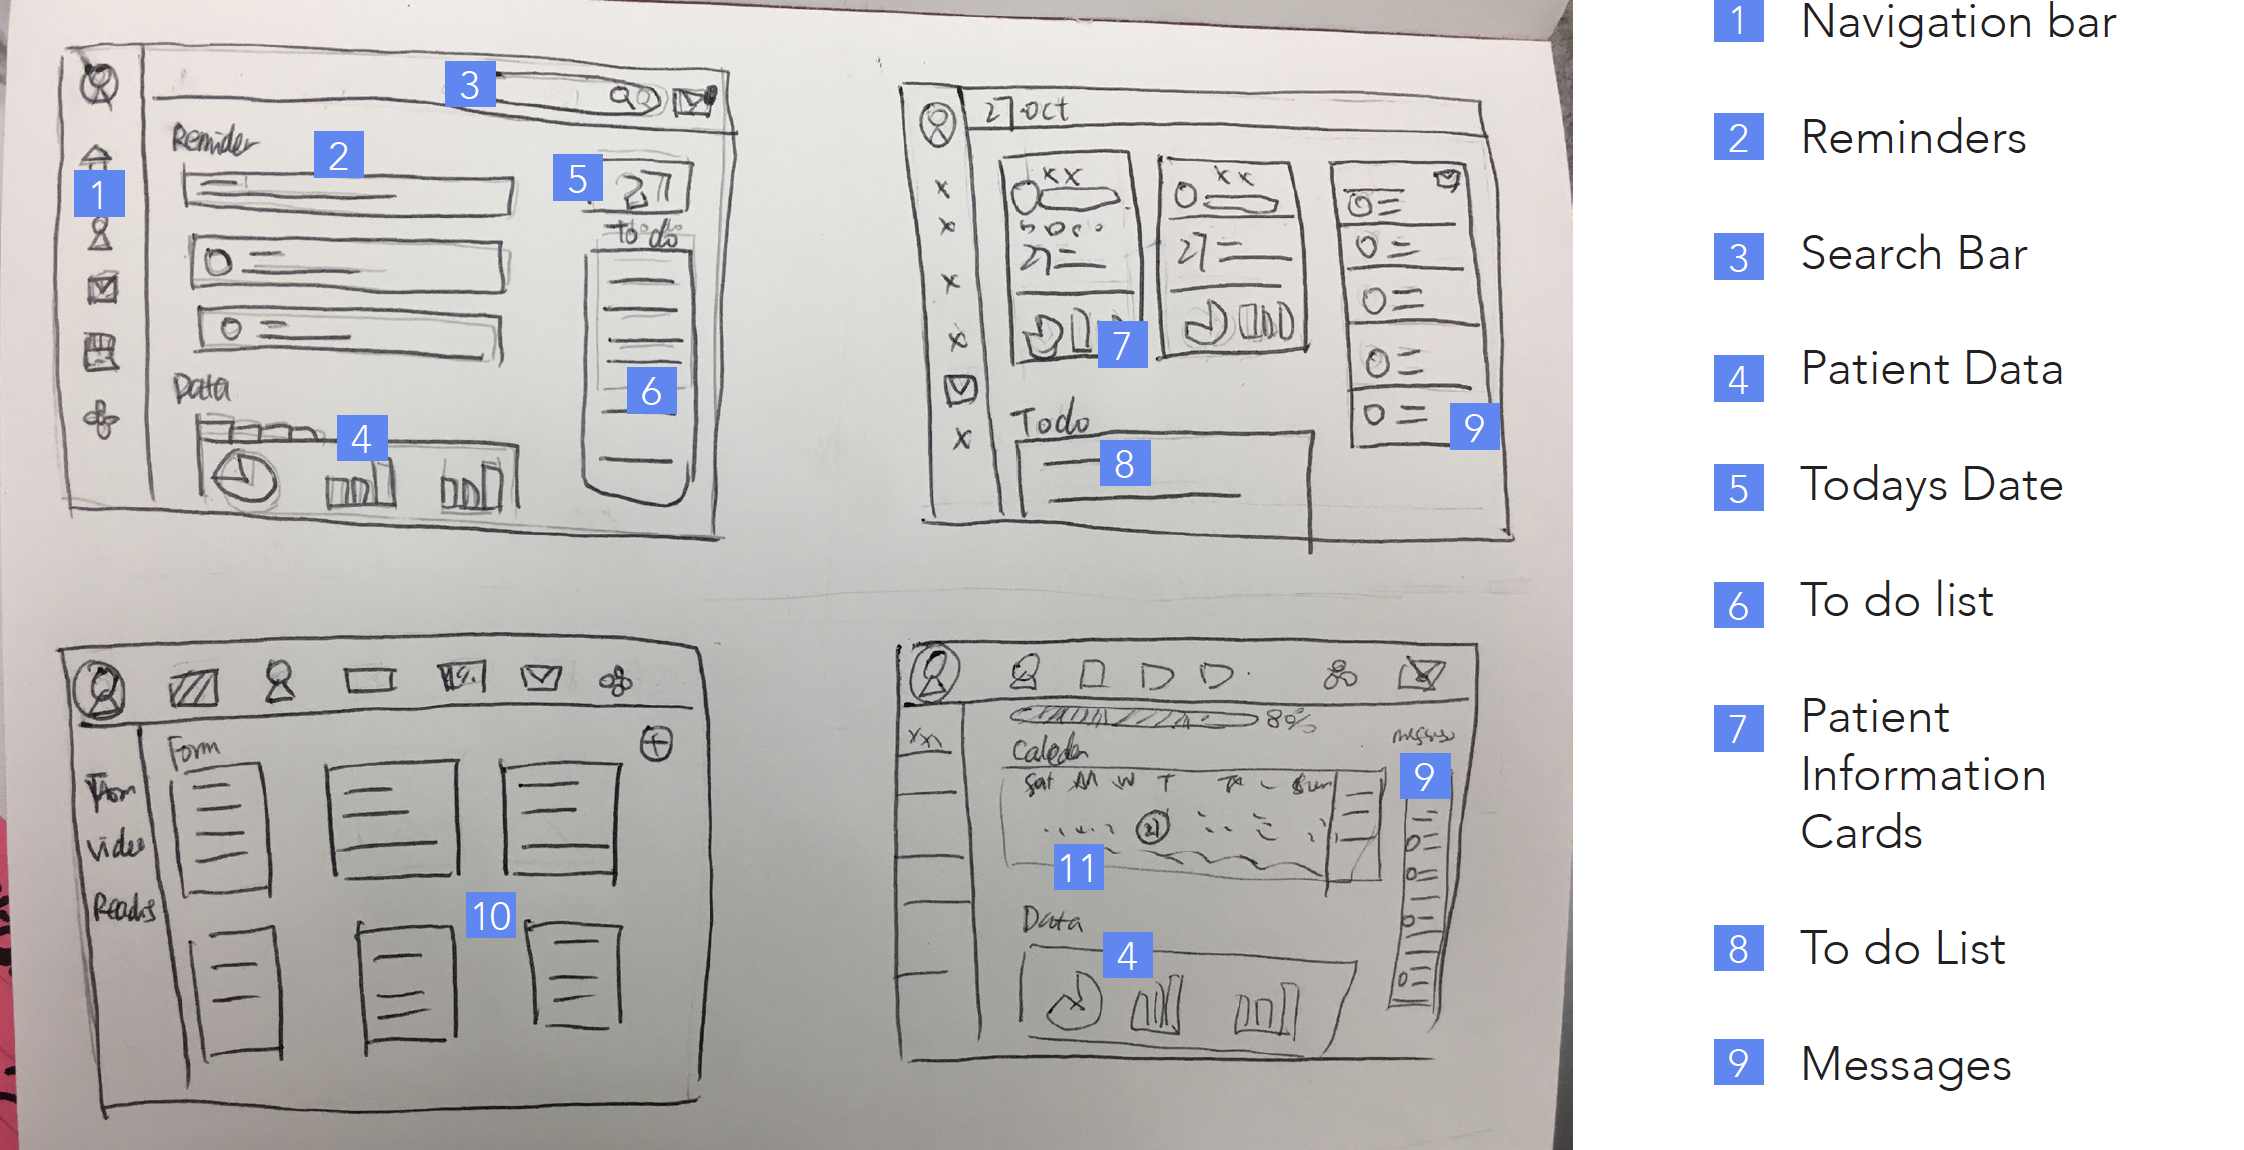 3
Reminder
2
1
5
27
To do
6
Data
4
27 oct
xx
xx
27
27
7
9
Todo
8
Form
Video
10
80%
Sat M W T
Sun
9
27
11
Data
4
1 Navigation bar
2 Reminders
3 Search Bar
4 Patient Data
5 Todays Date
6 To do list
7 Patient
Information
Cards
8 To do List
9 Messages